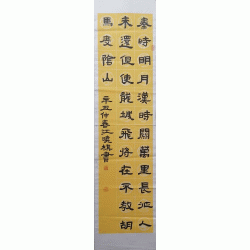 秦時明月漢時關萬里長征人
未還但使龍城飛將在不教胡
馬度陰山
辛丑仲春江書